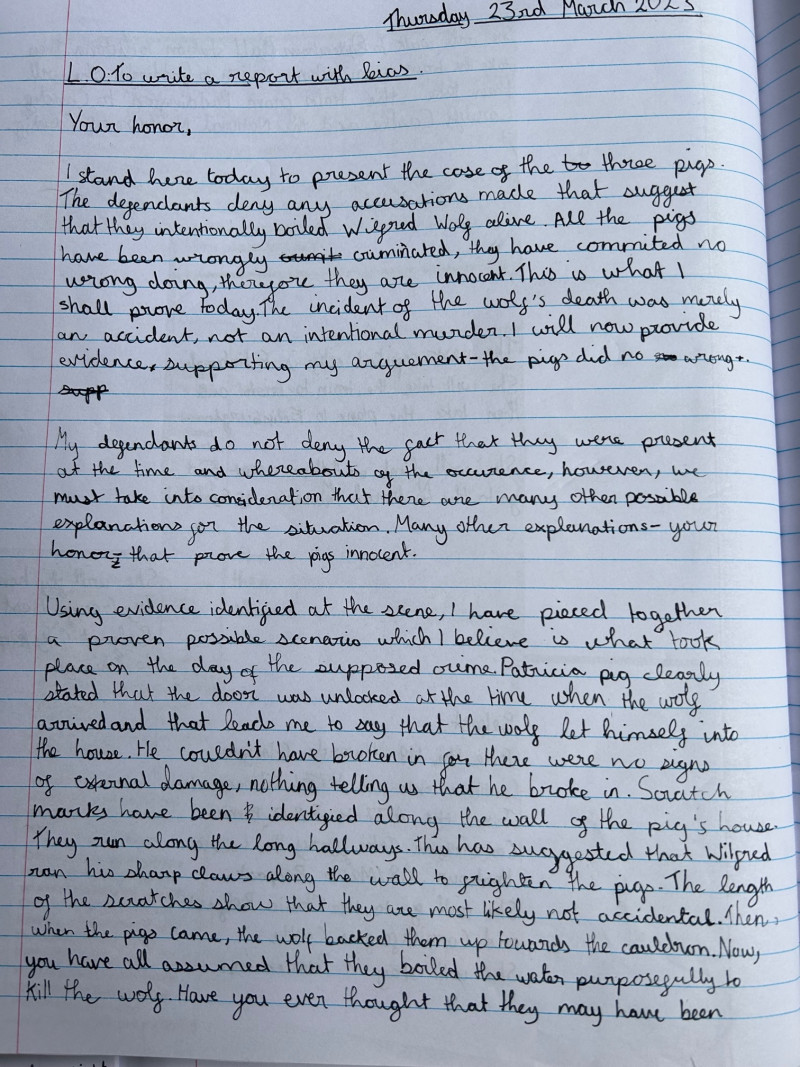 Thursday 23rd March 2023
L.O:To write a report with bias.
Your honor,
I stand here today to present the case of the to three pigs.
The defendants deny any accusations made that suggest
that they intentionally boiled Wilfred Wolf alive. All the pigs
have been wrongly crimininated, they have commited no
wrong doing, therefore they are innocent. This is what I
shall prove today. The incident of the wolf's death was merely
an accident, not an intentional murder. I will now provide
evidence, supporting my arguement-the pigs did no wrong.
supp
My defendants do not deny the fact that they were present
at the time and whereabouts of the occurence, however, we
must take into consideration that there are many other possible
explanations for the situation. Many other explanations- your
honor- that prove the pigs innocent.
Using evidence identified at the scene, I have pieced together
a proven possible scenario which I believe is what took
place on the day of the supposed crime. Patricia pig clearly
stated that the door was unlocked at the time when the wolf
arrived and that leads me to say that the wolf let himself into
the house. He couldn't have broken in for there were no signs
of external damage, nothing telling us that he broke in. Scratch
marks have been identified along the wall of the pig's house.
They run along the long hallways. This has suggested that Wilfred
ran his sharp claws along the wall to frighten the pigs. The length
of the scratches show that they are most likely not accidental. Then,
when the pigs came, the wolf backed them up towards the cauldron. Now,
you have all assumed that they boiled the water purposefully to
kill the wolf. Have you ever thought that they may have been